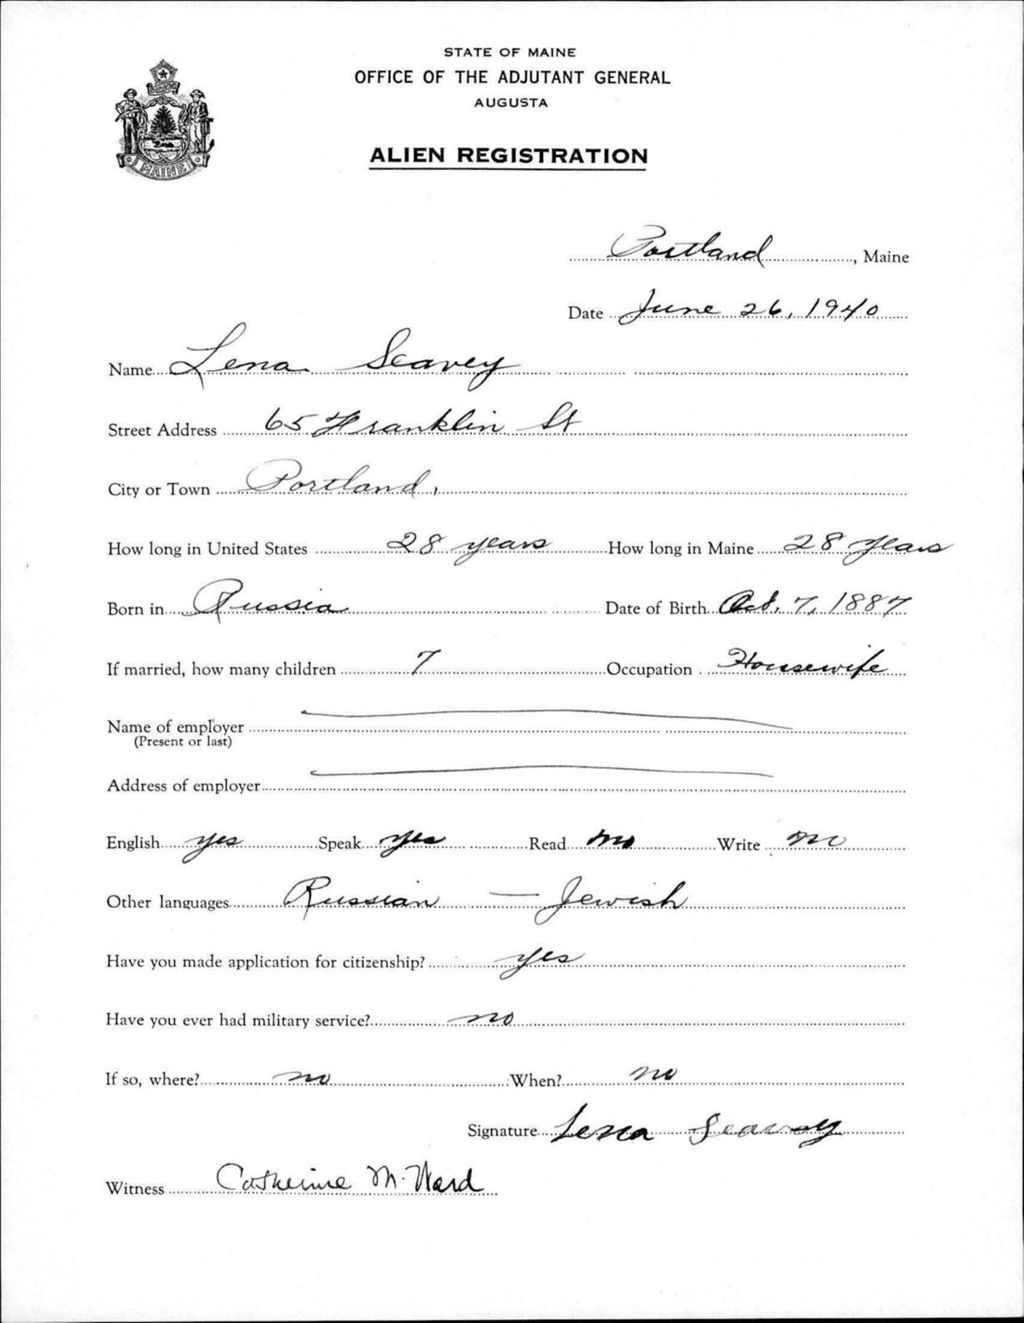 STATE OF MAINE
OFFICE OF THE ADJUTANT GENERAL
AUGUSTA
ALIEN REGISTRATION
MAINE
Portland, Maine
Date June 26, 1940
Name Lena Seavey
Street Address 65 Franklin St
City or Town Portland,
How long in United States 28 years How long in Maine 28 years
Born in Russia Date of Birth Oct. 7, 1887
If married, how many children 7 Occupation Housewife
Name of employer
(Present or last)
Address of employer
English yes Speak yes Read no Write no
Other languages Russian — Jewish
Have you made application for citizenship? yes
Have you ever had military service? no
If so, where? no When? no
Signature Lena Seavey
Witness Catherine M. Ward